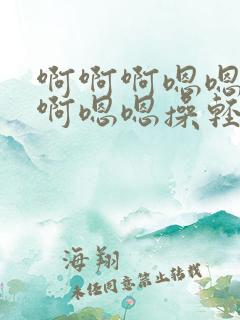 啊啊啊嗯嗯
啊嗯嗯操轻
海翔
未经同意禁止转载